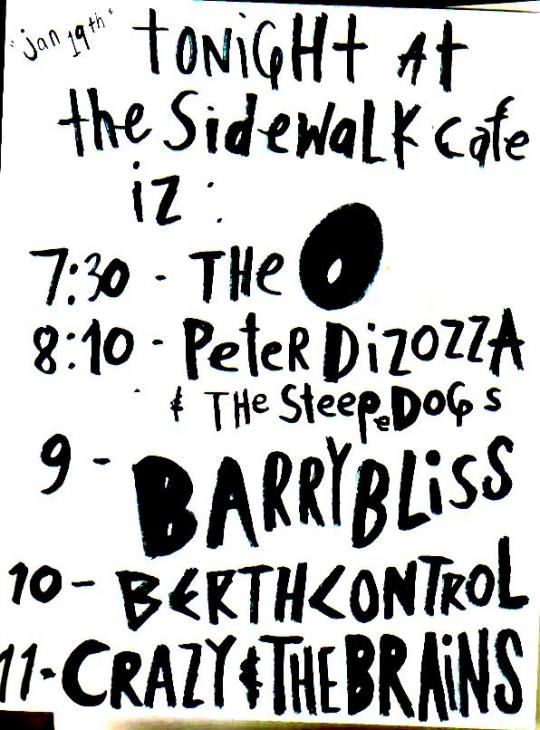 "jan 19th"
tONiGHt At
the SidewaLK cafe
iz :
7:30 - THe O
8:10 - PeteR DizozzA
& THe SteepeDOGs
9 - BARRY BLiSS
10 - BERTHCONTRoL
11 - CRAZY & THE BRAiNS